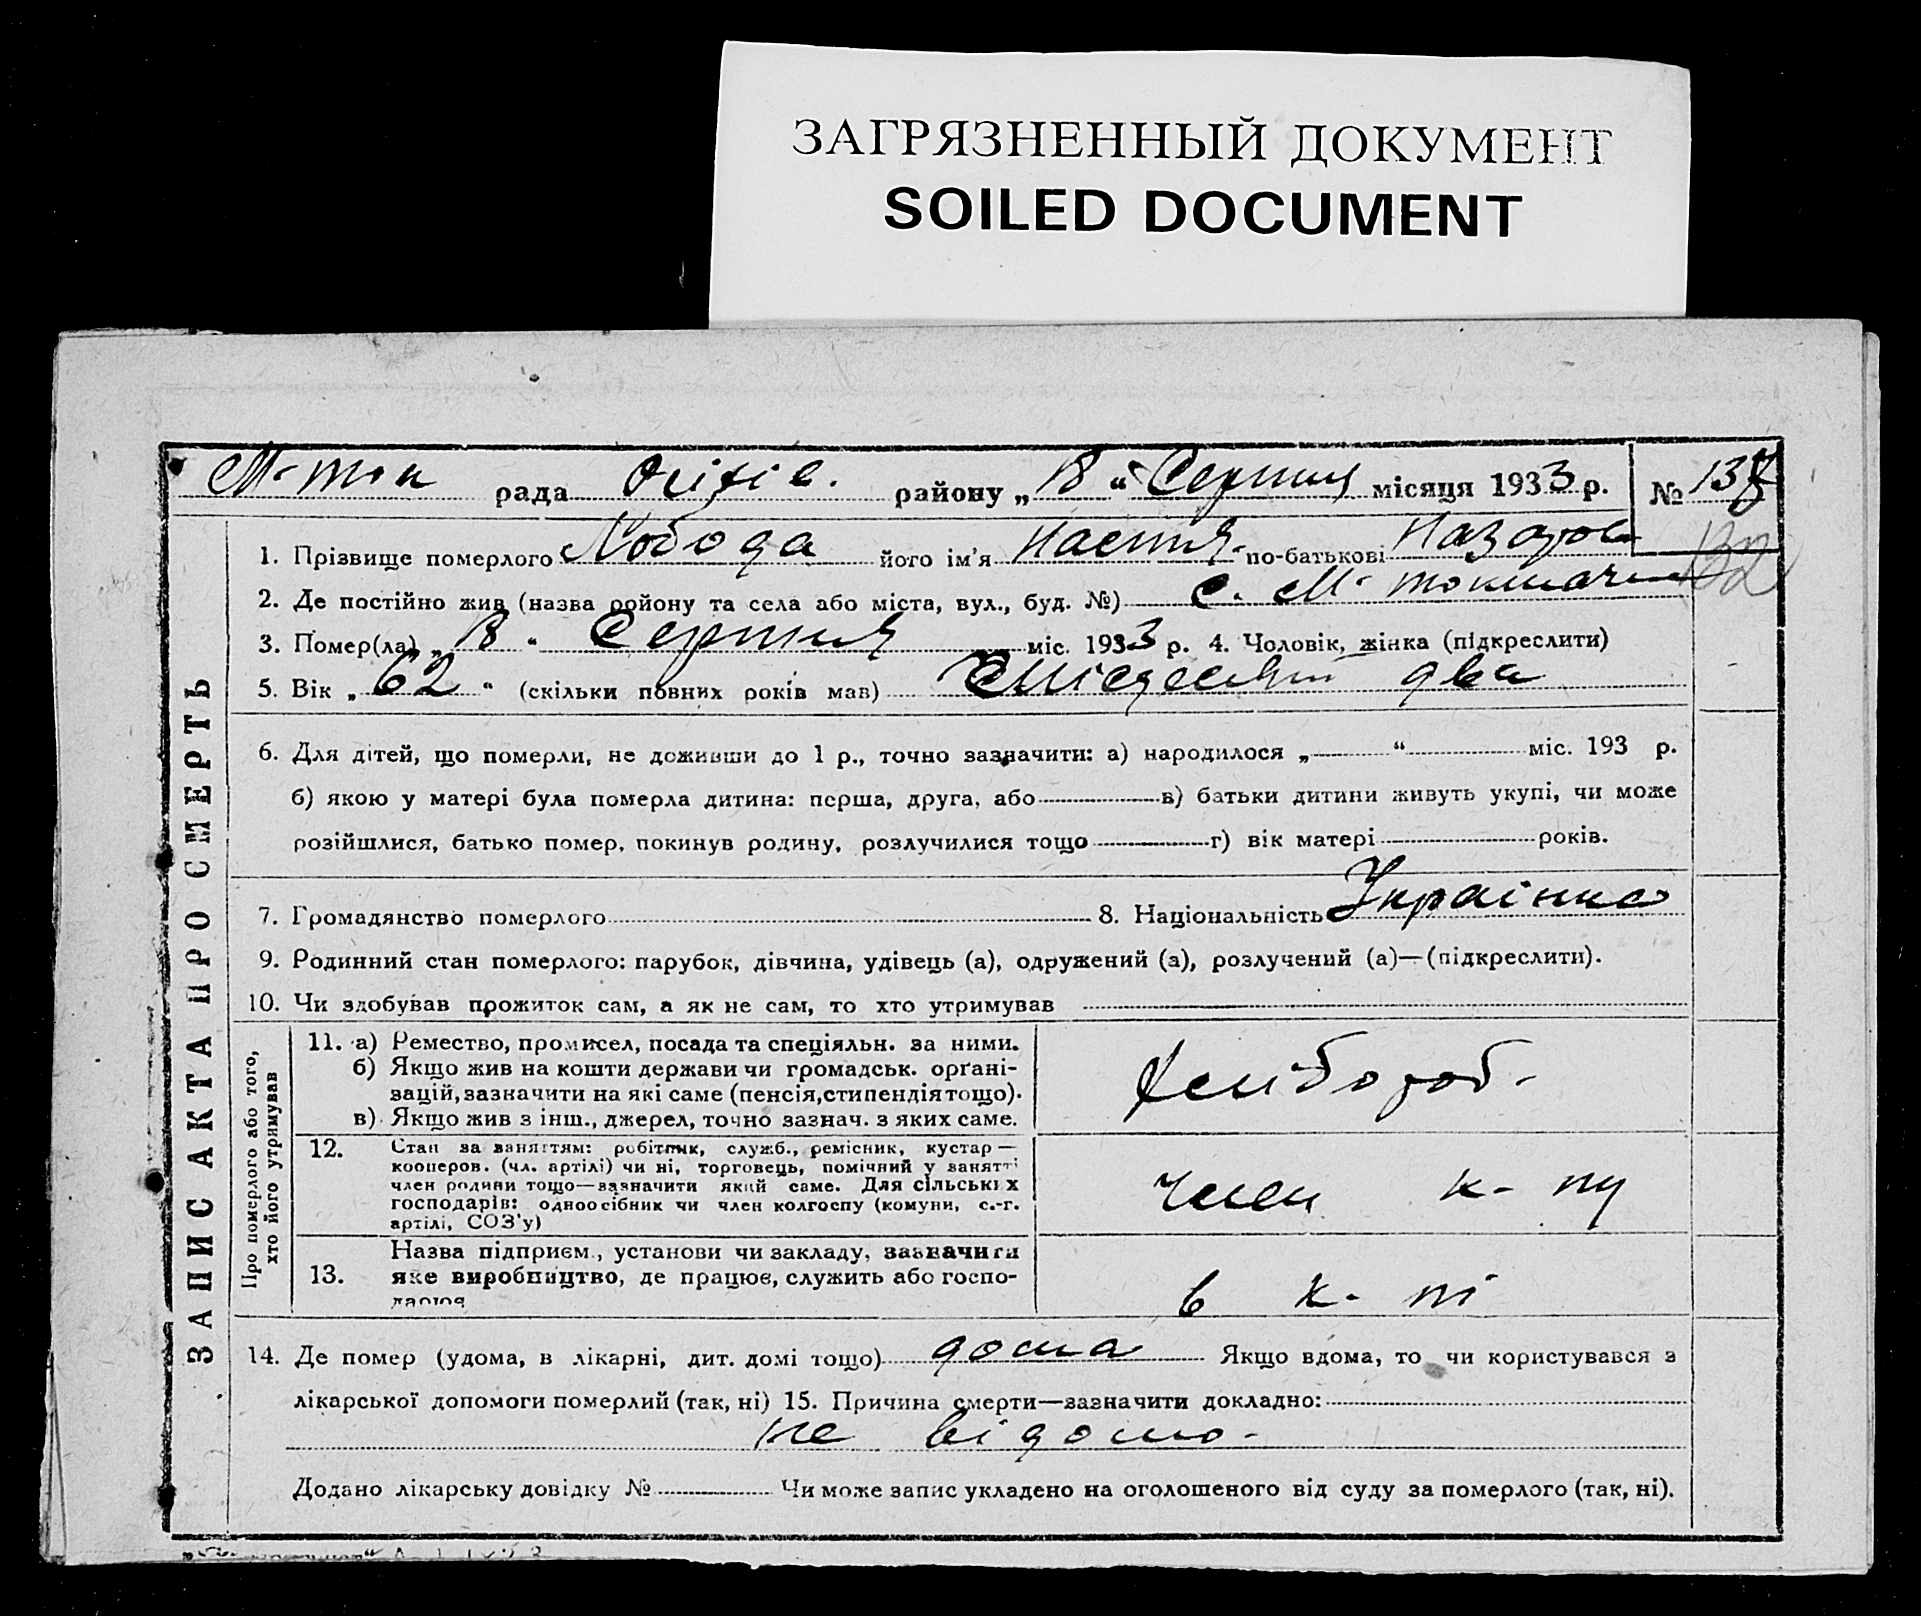 ЗАГРЯЗНЕННЫЙ ДОКУМЕНТ
SOILED DOCUMENT
М-ток рада Оріхів. району „ 18 “ Серпня місяця 1933 р. № 13
132
1. Прізвище померлого Лобода його ім’я Настя по-батькові Назаров
2. Де постійно жив (назва ройону та села або міста, вул., буд. №) с. М- токмачк
3. Помер(ла) „ 18 “ Серпня міс. 1933 р. 4. Чоловік, жінка (підкреслити)
5. Вік „ 62 “ (скільки повних років мав) шісдесят два
6. Для дітей, що померли, не доживши до 1 р., точно зазначити: а) народилося „ “ міс. 193 р.
б) якою у матері була померла дитина: перша, друга, або в) батьки дитини живуть укупі, чи може
розійшлися, батько помер, покинув родину, розлучилися тощо г) вік матері років.
7. Громадянство померлого 8. Національність Україика
9. Родинний стан померлого: парубок, дівчина, удівець (а), одружений (а), розлучений (а)—(підкреслити).
10. Чи здобував прожиток сам, а як не сам, то хто утримував
ЗАПИС АКТА ПРО СМЕРТЬ
Про померлого або того,
хто його утримував
11. а) Ремество, промисел, посада та спеціяльн. за ними.
б) Якщо жив на кошти держави чи громадськ. орґані-
зацій, зазначити на які саме (пенсія, стипендія тощо).
в) Якщо жив з інш., джерел, точно зазнач. з яких саме.
хлібороб-
12. Стан за заняттям: робітник, служб., ремісник, кустар—
кооперов. (чл. артілі) чи ні, торговець, помічний у занятті
член родини тощо—зазначити який саме. Для сільських
господарів: одноосібник чи член колгоспу (комуни, с.-г.
артілі, СОЗ’у)
член к- пу
13. Назва підприєм., установи чи закладу, зазначити
яке виробництво, де працює, служить або госпо-
дарює
в к- пі
14. Де помер (удома, в лікарні, дит. домі тощо) дома Якщо вдома, то чи користувався з
лікарської допомоги померлий (так, ні) 15. Причина смерти—зазначити докладно:
не відомо-
Додано лікарську довідку № Чи може запис укладено на оголошеного від суду за померлого (так, ні).